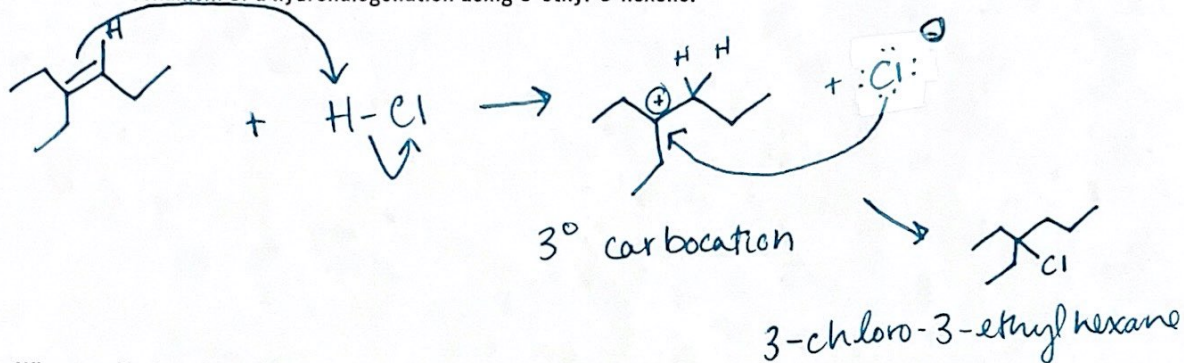 H
+ H-Cl
H H
⊕
+ :Cl: ⊖
3° carbocation
Cl
3-chloro-3-ethylhexane